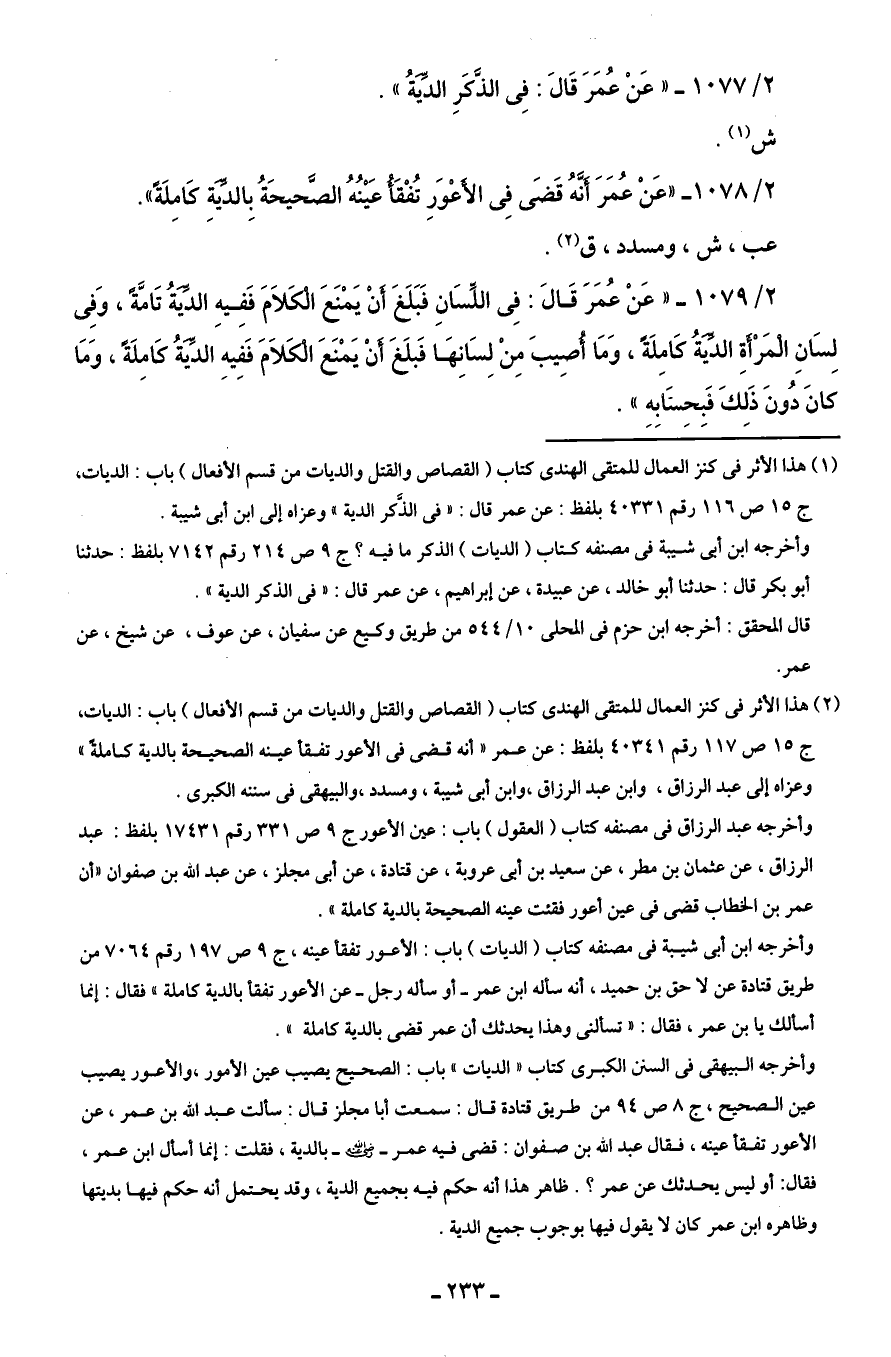 ٢/ ١٠٧٧ ـ « عَنْ عُمَرَ قَالَ : فِى الذَّكَرِ الدِّيَةُ » .
ش(١) .
٢/ ١٠٧٨ـ «عَنْ عُمَرَ أَنَّهُ قَضَى فِى الأَعْوَرِ تُفْقَأُ عَيْنُهُ الصَّحِيحَةُ بِالدِّيَةِ كَامِلَةً».
عب ، ش ، ومسدد ، ق(٢) .
٢/ ١٠٧٩ ـ « عَنْ عُمَرَ قَـالَ : فِى اللِّسَانِ فَبَلَغَ أَنْ يَمْنَعَ الْكَلاَمَ فَفِـيهِ الدِّيَةُ تَامَّةً ، وَفِى
لِسَانِ الْمَرْأَةِ الدِّيَةُ كَامِلَةً ، وَمَا أُصِيبَ مِنْ لِسَانِهَـا فَبَلَغَ أَنْ يَمْنَعَ الْكَلاَمَ فَفِيهِ الدِّيَةُ كَامِلَةً ، وَمَا
كَانَ دُونَ ذَلِكَ فَبِحِسَابِهِ » .
(١) هذا الأثر فى كنز العمال للمتقى الهندى كتاب ( القصاص والقتل والديات من قسم الأفعال ) باب : الديات،
ج ١٥ ص ١١٦ رقم ٤٠٣٣١ بلفظ : عن عمر قال : « فى الذَّكر الدية » وعزاه إلى ابن أبى شيبة .
وأخرجه ابن أبى شـيبة فى مصنفه كـتاب ( الديات ) الذكر ما فيـه ؟ ج ٩ ص ٢١٤ رقم ٧١٤٢ بلفظ : حدثنا
أبو بكر قال : حدثنا أبو خالد ، عن عبيدة ، عن إبراهيم ، عن عمر قال : « فى الذكر الدية » .
قال المحقق : أخرجه ابن حزم فى المحلى ١٠/ ٥٤٤ من طريق وكـيع عن سفيان ، عن عوف ، عن شيخ ، عن
عمر.
(٢) هذا الأثر فى كنز العمال للمتقى الهندى كتاب ( القصاص والقتل والديات من قسم الأفعال ) باب : الديات،
ج ١٥ ص ١١٧ رقم ٤٠٣٤١ بلفظ : عن عـمر « أنه قـضى فى الأعور تفـقأ عـينه الصحيـحة بالدية كـاملةً »
وعزاه إلى عبد الرزاق ، وابن عبد الرزاق ،وابن أبى شيبة ، ومسدد ،والبيهقى فى سننه الكبرى .
وأخرجه عبد الرزاق فى مصنفه كتاب ( العقول ) باب : عين الأعور ج ٩ ص ٣٣١ رقم ١٧٤٣١ بلفظ : عبد
الرزاق ، عن عثمان بن مطر ، عن سعيد بن أبى عروبة ، عن قتادة ، عن أبى مجلز ، عن عبد الله بن صفوان «أن
عمر بن الخطاب قضى فى عين أعور فقئت عينه الصحيحة بالدية كاملة » .
وأخرجه ابن أبى شيـبة فى مصنفه كتاب ( الديات ) باب : الأعـور تفقأ عينه ، ج ٩ ص ١٩٧ رقم ٧٠٦٤ من
طريق قتادة عن لا حق بن حميد ، أنه سأله ابن عمر ـ أو سأله رجل ـ عن الأعور تفقأ بالدية كاملة » فقال : إنما
أسألك يا بن عمر ، فقال : « تسألنى وهذا يحدثك أن عمر قضى بالدية كاملة » .
وأخرجه الـبيهقى فى السنن الكبـرى كتاب « الديات » باب : الصحيح يصيب عين الأمور ،والأعـور يصيب
عين الـصحيح ، ج ٨ ص ٩٤ من طـريق قتادة قـال : سمـعت أبا مجلز قـال : سألت عـبد الله بن عـمر ، عن
الأعور تفـقأ عينه ، فـقال عبد الله بن صفـوان : قضى فـيه عمـر ـ رضي الله عنه ـ بالدية ، فقلت : إنما أسأل ابن عـمر ،
فقال: أو ليس يحـدثك عن عمر ؟ . ظاهر هذا أنه حكم فيـه بجميع الدية ، وقد يحـتمل أنه حكم فيهـا بديتها
وظاهره ابن عمر كان لا يقول فيها بوجوب جميع الدية .
ـ ٢٣٣ ـ